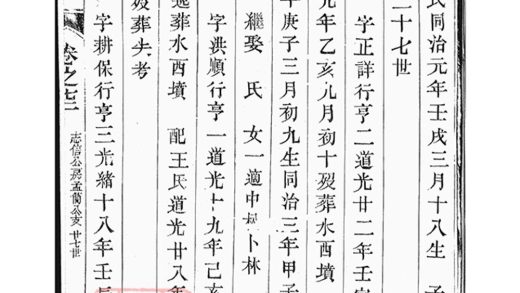 氏同治元年壬戌三月十八生 子
二十七世
字正詳行亨二道光廿二年壬寅
元年乙亥九月初十歿葬水西墳
年庚子三月初九生同治三年甲子
繼娶 氏 女一適中
卜林
字洪順行亨一道光十九年己亥
葬水西墳 配王氏道光廿八年
歿葬失考
字耕保行亨三光緒十八年壬辰
卷之
志信公房孟蘭公支 廿七世